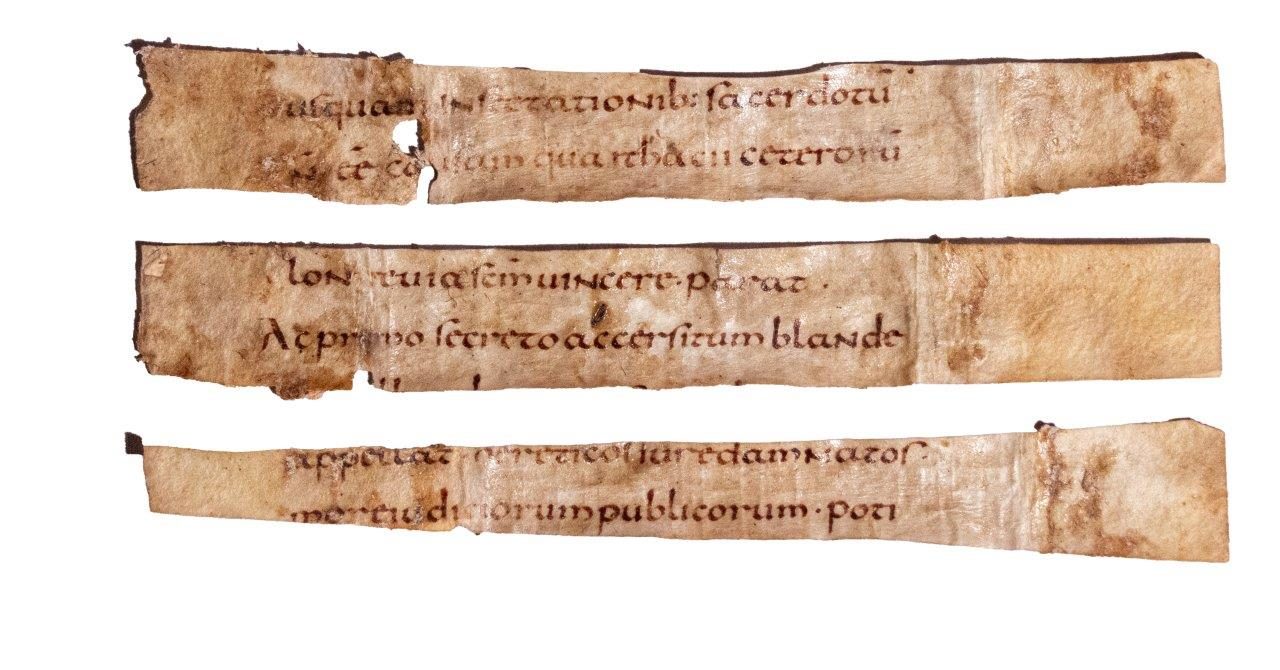 usquam insectationib: sacerdotū
n̄ eē causam qua ithacii ceterorū
longe uia sc̄m uincere · parat ·
Ac primo secreto accersitum blande
appellat hereticos iure damnatos ·
more iudiciorum publicorum · poti